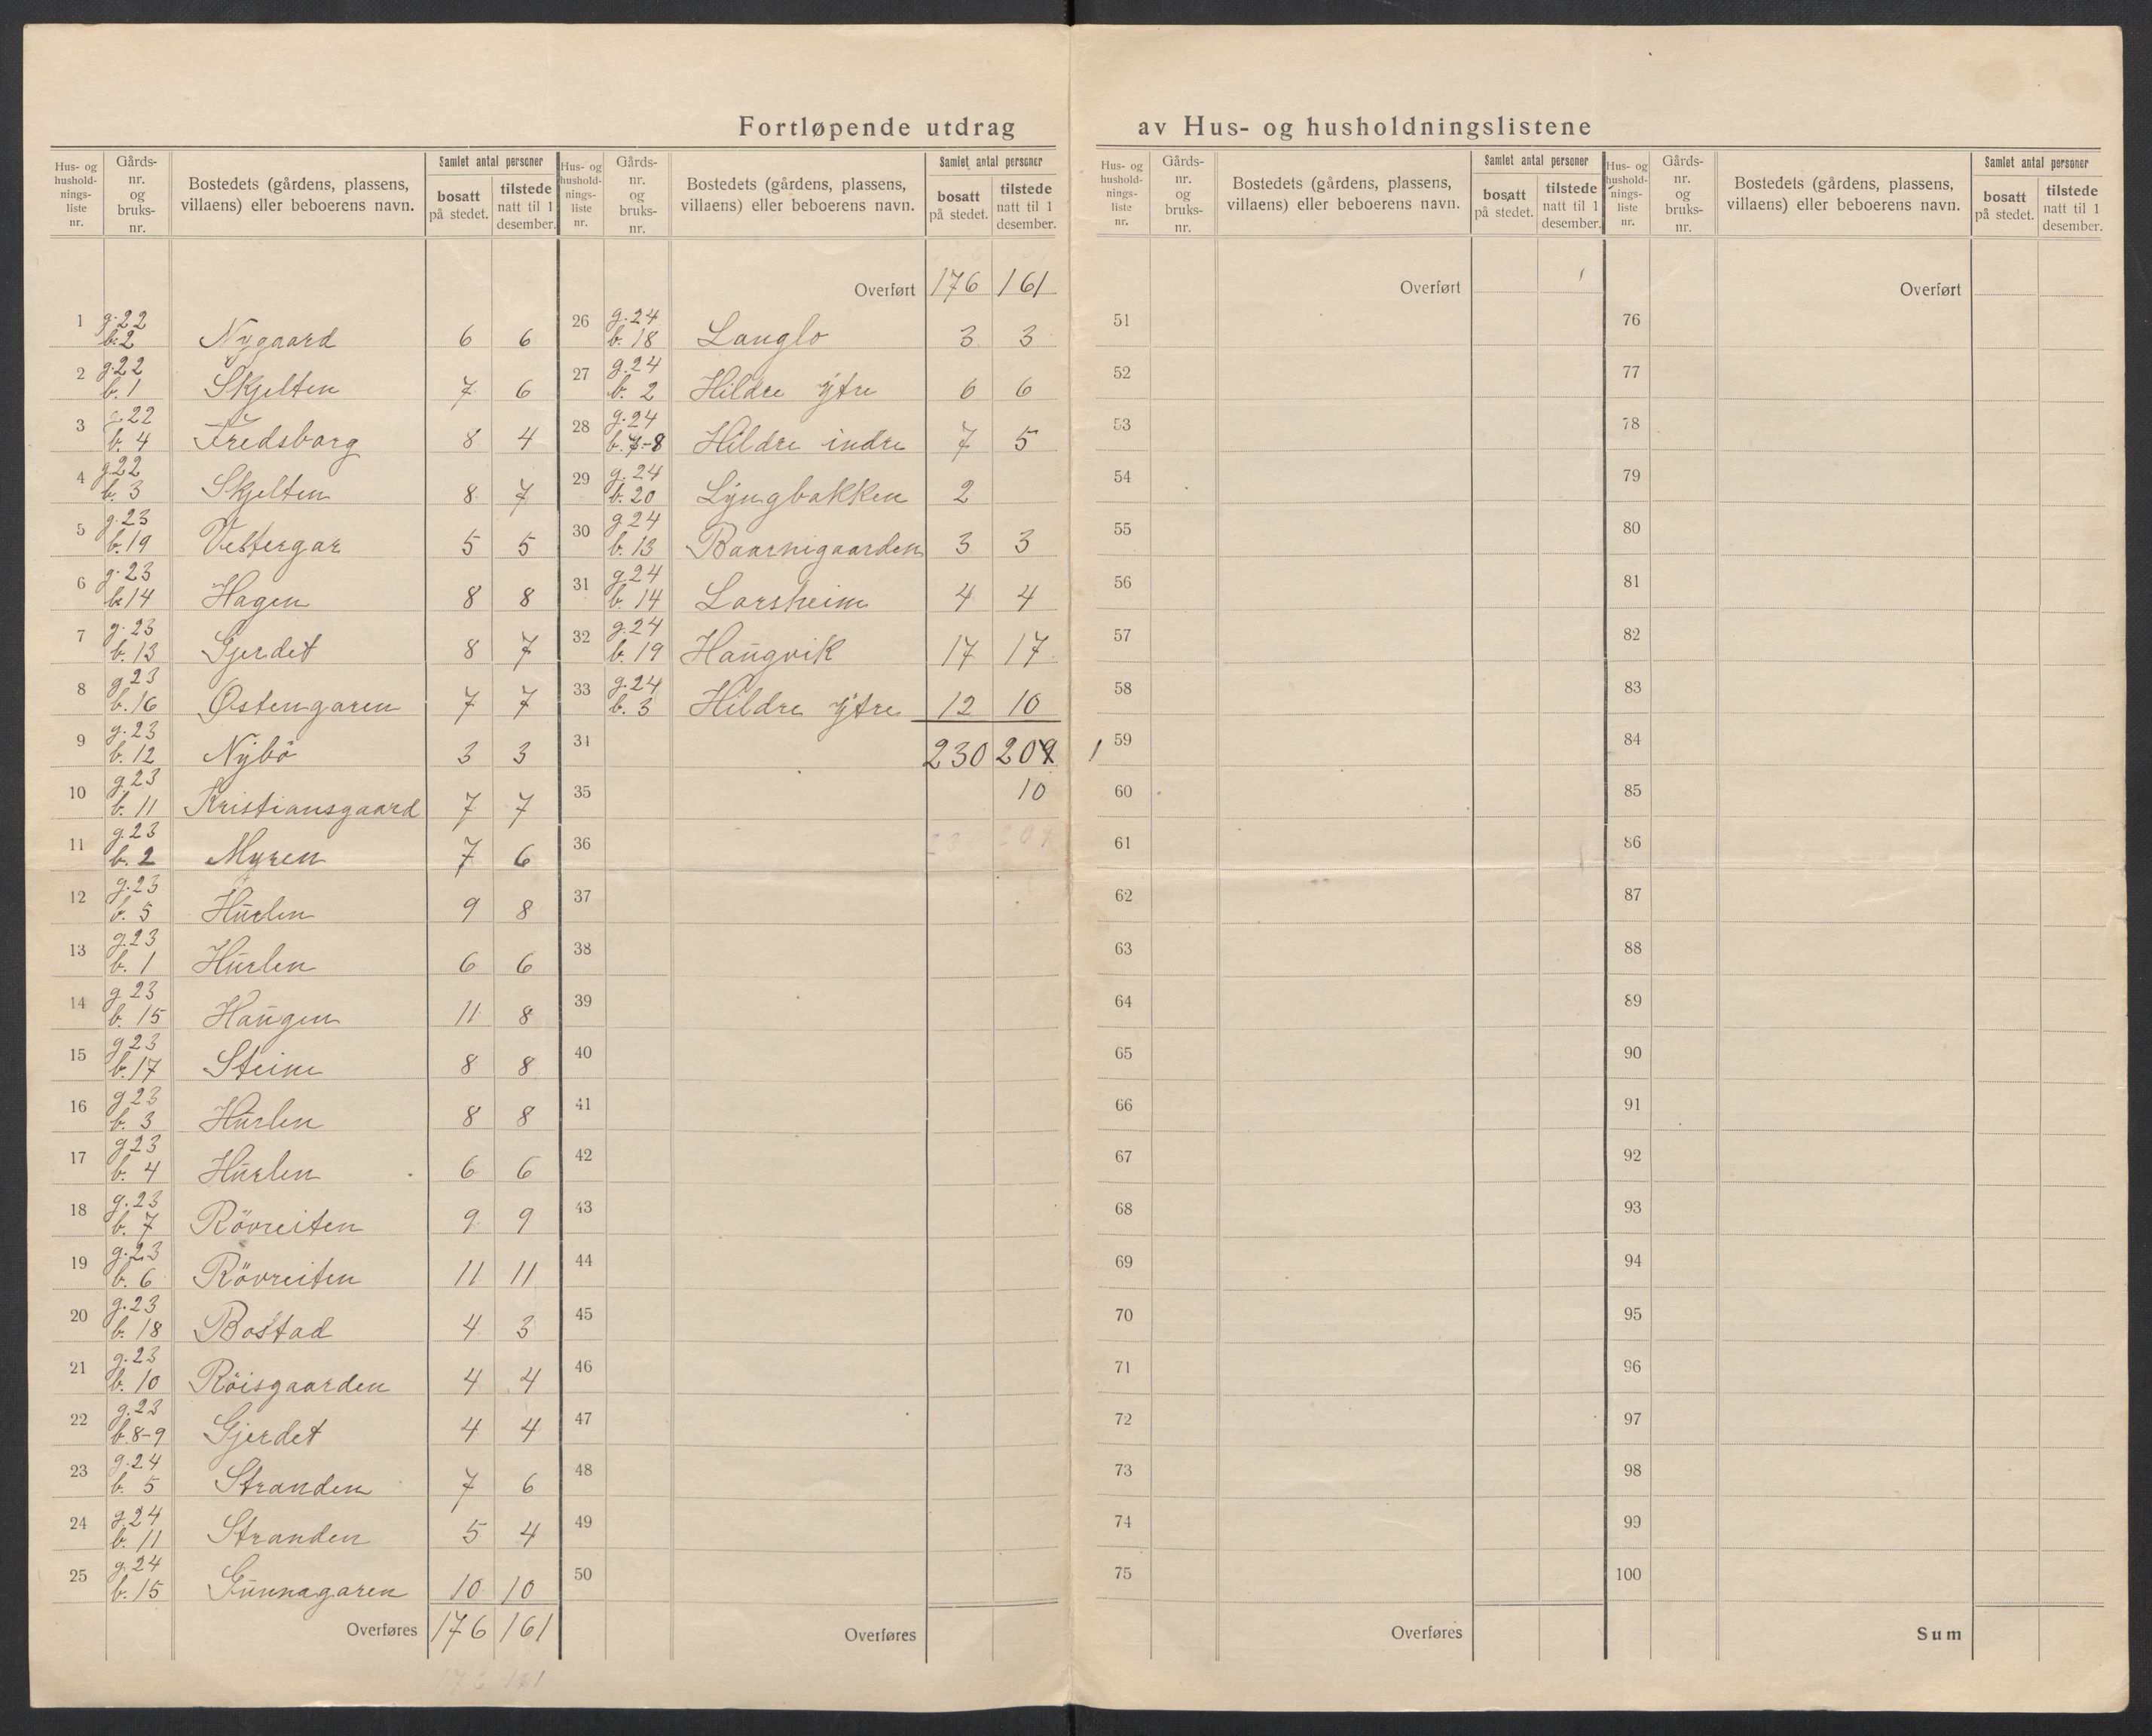 Fortløpende utdrag av Hus- og husholdningslistene
Hus- og hushold- nings- liste nr. | Gårds- nr. og bruks- nr. | Bostedets (gårdens, plassens, villaens) eller beboerens navn. | Samlet antal personer | bosatt på stedet. | tilstede natt til 1 desember.
1 g.22 b.2 Nygaard 6 6
2 g.22 b.1 Skjelten 7 6
3 g.22 b.4 Fredsborg 8 4
4 g.22 b.3 Skjelten 8 7
5 g.23 b.19 Vestergar 5 5
6 g.23 b.14 Hagen 8 8
7 g.23 b.13 Gjerdet 8 7
8 g.23 b.16 Østengaren 7 7
9 g.23 b.12 Nybö 3 3
10 g.23 b.11 Kristiansgaard 7 7
11 g.23 b.2 Myren 7 6
12 g.23 b.5 Hurlen 9 8
13 g.23 b.1 Hurlen 6 6
14 g.23 b.15 Haugen 11 8
15 g.23 b.17 Steine 8 8
16 g.23 b.3 Hurlen 8 8
17 g.23 b.4 Hurlen 6 6
18 g.23 b.7 Rövreiten 9 9
19 g.23 b.6 Rövreiten 11 11
20 g.23 b.18 Bostad 4 3
21 g.23 b.10 Röisgaarden 4 4
22 g.23 b.8-9 Gjerdet 4 4
23 g.24 b.5 Stranden 7 6
24 g.24 b.11 Stranden 5 4
25 g.24 b.15 Gunnagaren 10 10
Overføres 176 161
176 161
Hus- og hushold- nings- liste nr. | Gårds- nr. og bruks- nr. | Bostedets (gårdens, plassens, villaens) eller beboerens navn. | Samlet antal personer | bosatt på stedet. | tilstede natt til 1 desember.
Overført 176 161
26 g.24 b.18 Langlo 3 3
27 g.24 b.2 Hildre ytre 6 6
28 g.24 b.7-8 Hildre indre 7 5
29 g.24 b.20 Lyngbakken 2
30 g.24 b.13 Baarnigaarden 3 3
31 g.24 b.14 Larsheim 4 4
32 g.24 b.19 Haugvik 17 17
33 g.24 b.3 Hildre ytre 12 10
34 230 209 1
35 10
36
37
38
39
40
41
42
43
44
45
46
47
48
49
50
Overføres
Hus- og hushold- nings- liste nr. | Gårds- nr. og bruks- nr. | Bostedets (gårdens, plassens, villaens) eller beboerens navn. | Samlet antal personer | bosatt på stedet. | tilstede natt til 1 desember.
Overført
51
52
53
54
55
56
57
58
59
60
61
62
63
64
65
66
67
68
69
70
71
72
73
74
75
Overføres
Hus- og hushold- nings- liste nr. | Gårds- nr. og bruks- nr. | Bostedets (gårdens, plassens, villaens) eller beboerens navn. | Samlet antal personer | bosatt på stedet. | tilstede natt til 1 desember.
Overført
76
77
78
79
80
81
82
83
84
85
86
87
88
89
90
91
92
93
94
95
96
97
98
99
100
Sum